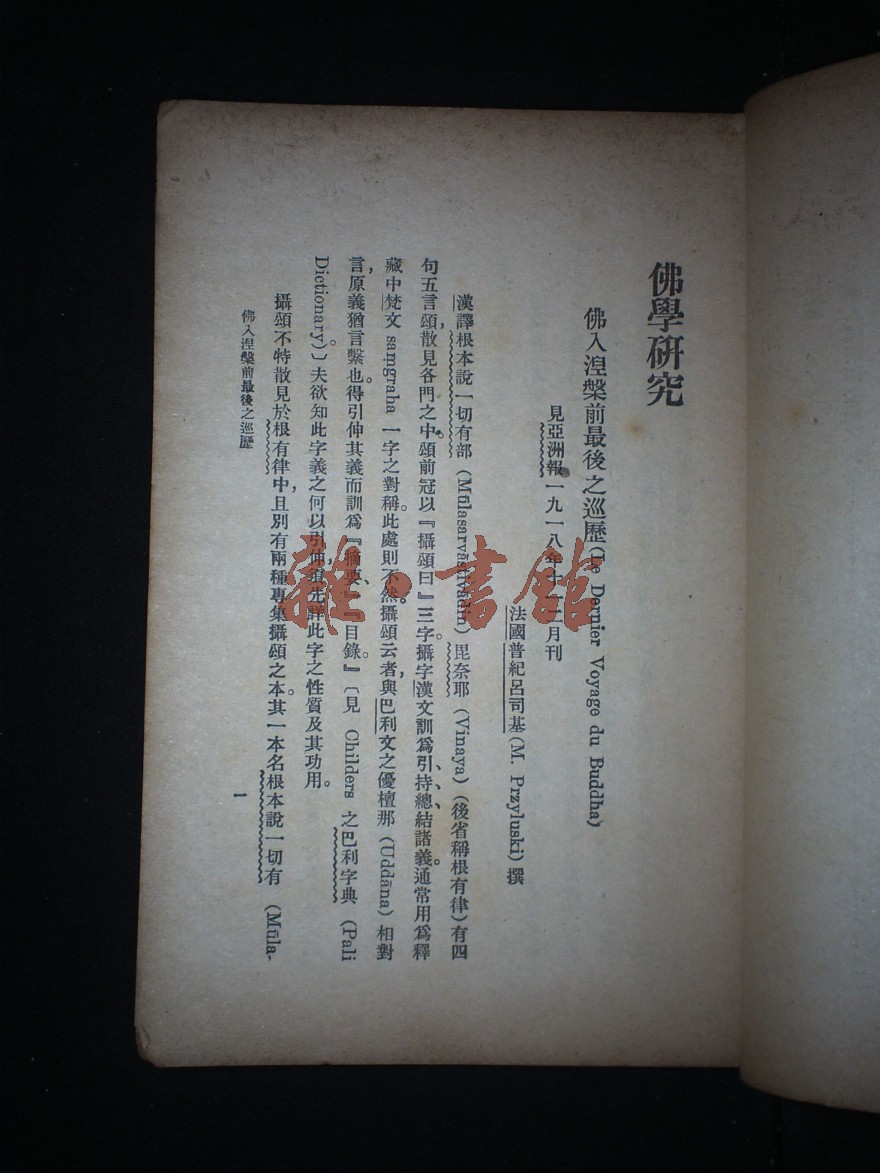 佛學研究
佛入湼槃前最後之巡歷(Le Dernier Voyage du Buddha)
見亞洲報一九一八年十一二月刊
法國普紀呂司基(M. Przyluski)撰
漢譯根本說一切有部(Mūlasarvāstivādin)毘奈耶(Vinaya)(後省稱根有律)有四
句五言頌,散見各門之中。頌前冠以『攝頌曰』三字。攝字漢文訓爲引、持、總、結諸義。通常用爲釋
藏中梵文 saṃgraha 一字之對稱。此處則不然。攝頌云者,與巴利文之優檀那(Uddāna)相對
言,原義猶言繫也。得引伸其義而訓爲『摘要』、『目錄。』〔見 Childers 之巴利字典(Pali
Dictionary)。〕夫欲知此字義之何以引伸,須先詳此字之性質及其功用。
攝頌不特散見於根有律中,且別有兩種專集攝頌之本。其一本名根本說一切有(Mūla-
佛入湼槃前最後之巡歷
一
雜·書館